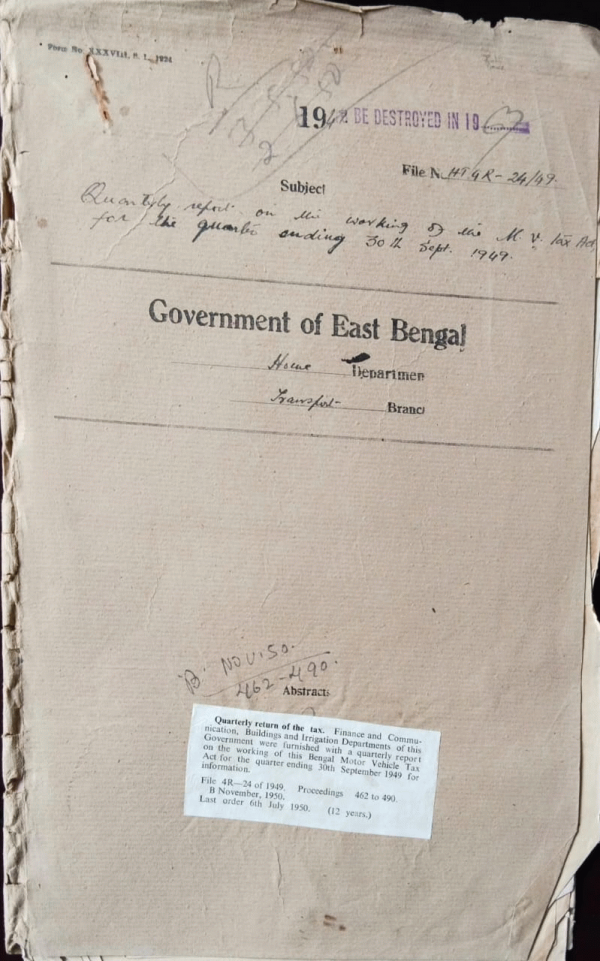 Form No. XXXVIII, S. L., 1924
1949 BE DESTROYED IN 19
File N HT4R-24/49.
Subject
Quarterly report on the working of the M. V. Tax Act
for the quarter ending 30th Sept. 1949.
Government of East Bengal
Home Departmen
Transport Branc
B. NOV.50.
462-490.
Abstracts
Quarterly return of the tax. Finance and Commu-
nication, Buildings and Irrigation Departments of this
Government were furnished with a quarterly report
on the working of this Bengal Motor Vehicle Tax
Act for the quarter ending 30th September 1949 for
information.
File 4R—24 of 1949. Proceedings 462 to 490
B November, 1950.
Last order 6th July 1950. (12 years.)